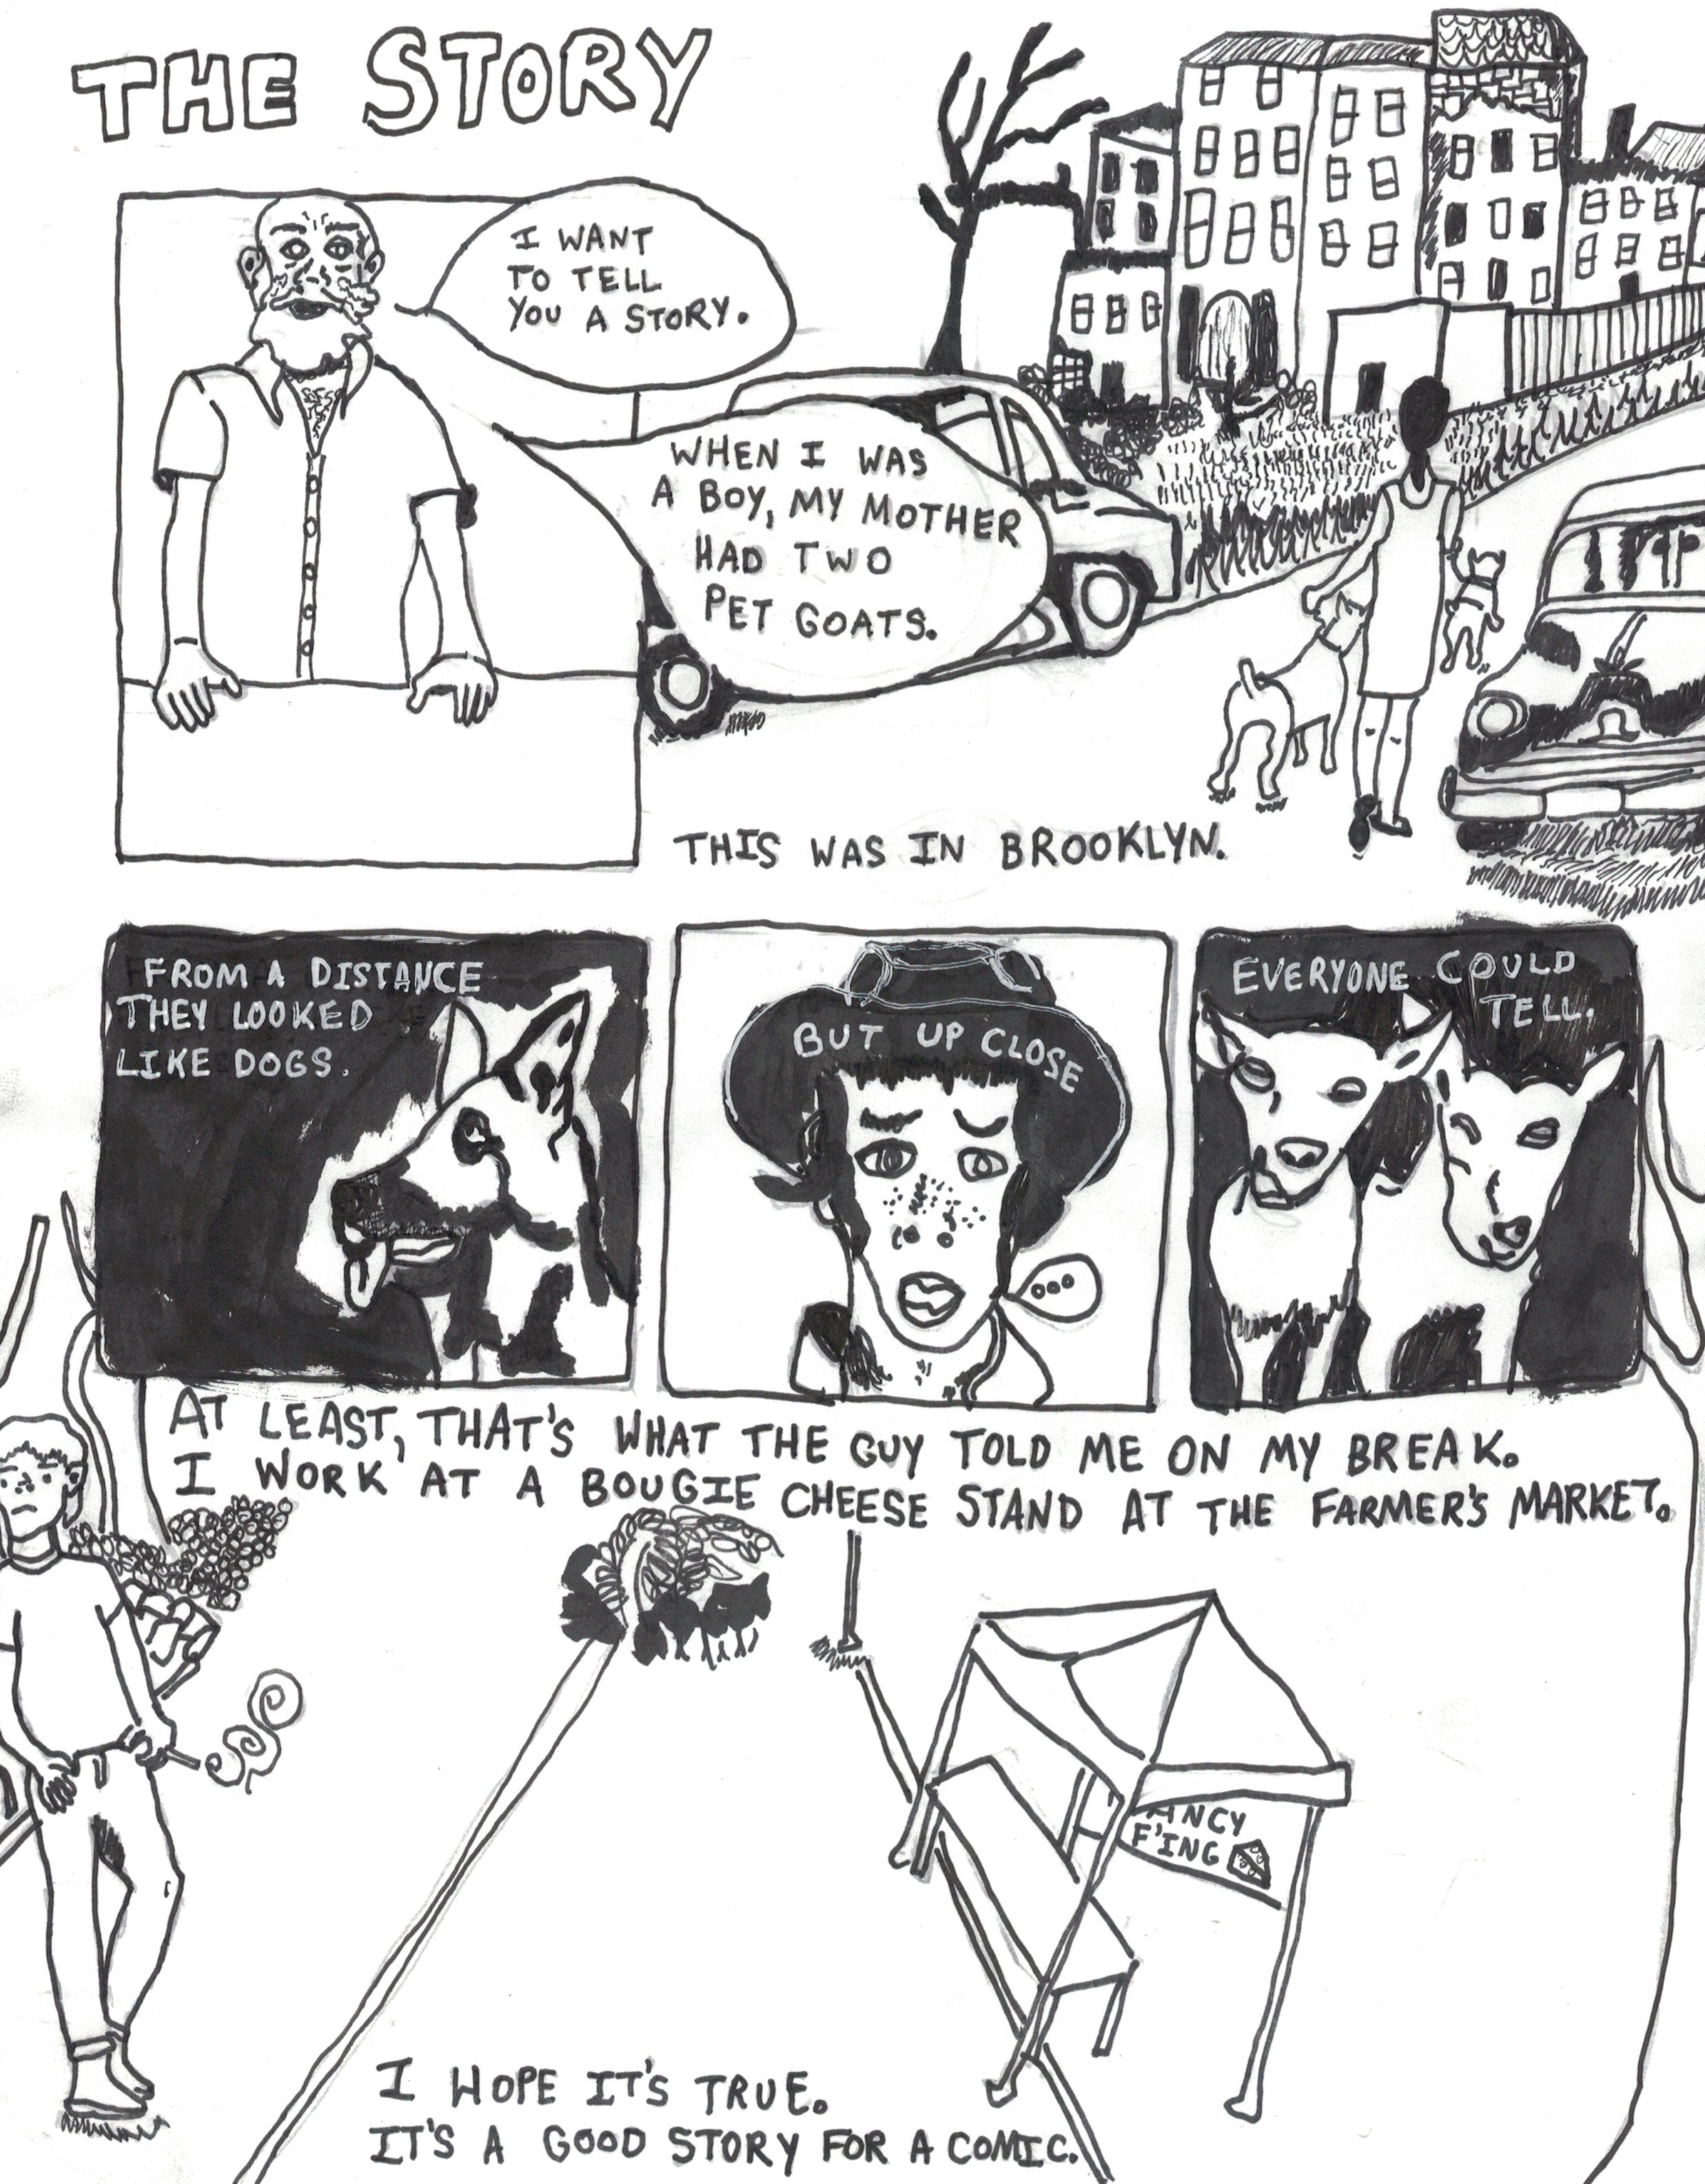 THE STORY
I WANT
TO TELL
YOU A STORY.
WHEN I WAS
A BOY, MY MOTHER
HAD TWO
PET GOATS.
THIS WAS IN BROOKLYN.
FROM A DISTANCE
THEY LOOKED
LIKE DOGS.
BUT UP CLOSE
...
EVERYONE COULD
TELL.
AT LEAST, THAT'S WHAT THE GUY TOLD ME ON MY BREAK.
I WORK AT A BOUGIE CHEESE STAND AT THE FARMER'S MARKET.
ANCY
F'ING
I HOPE IT'S TRUE.
IT'S A GOOD STORY FOR A COMIC.